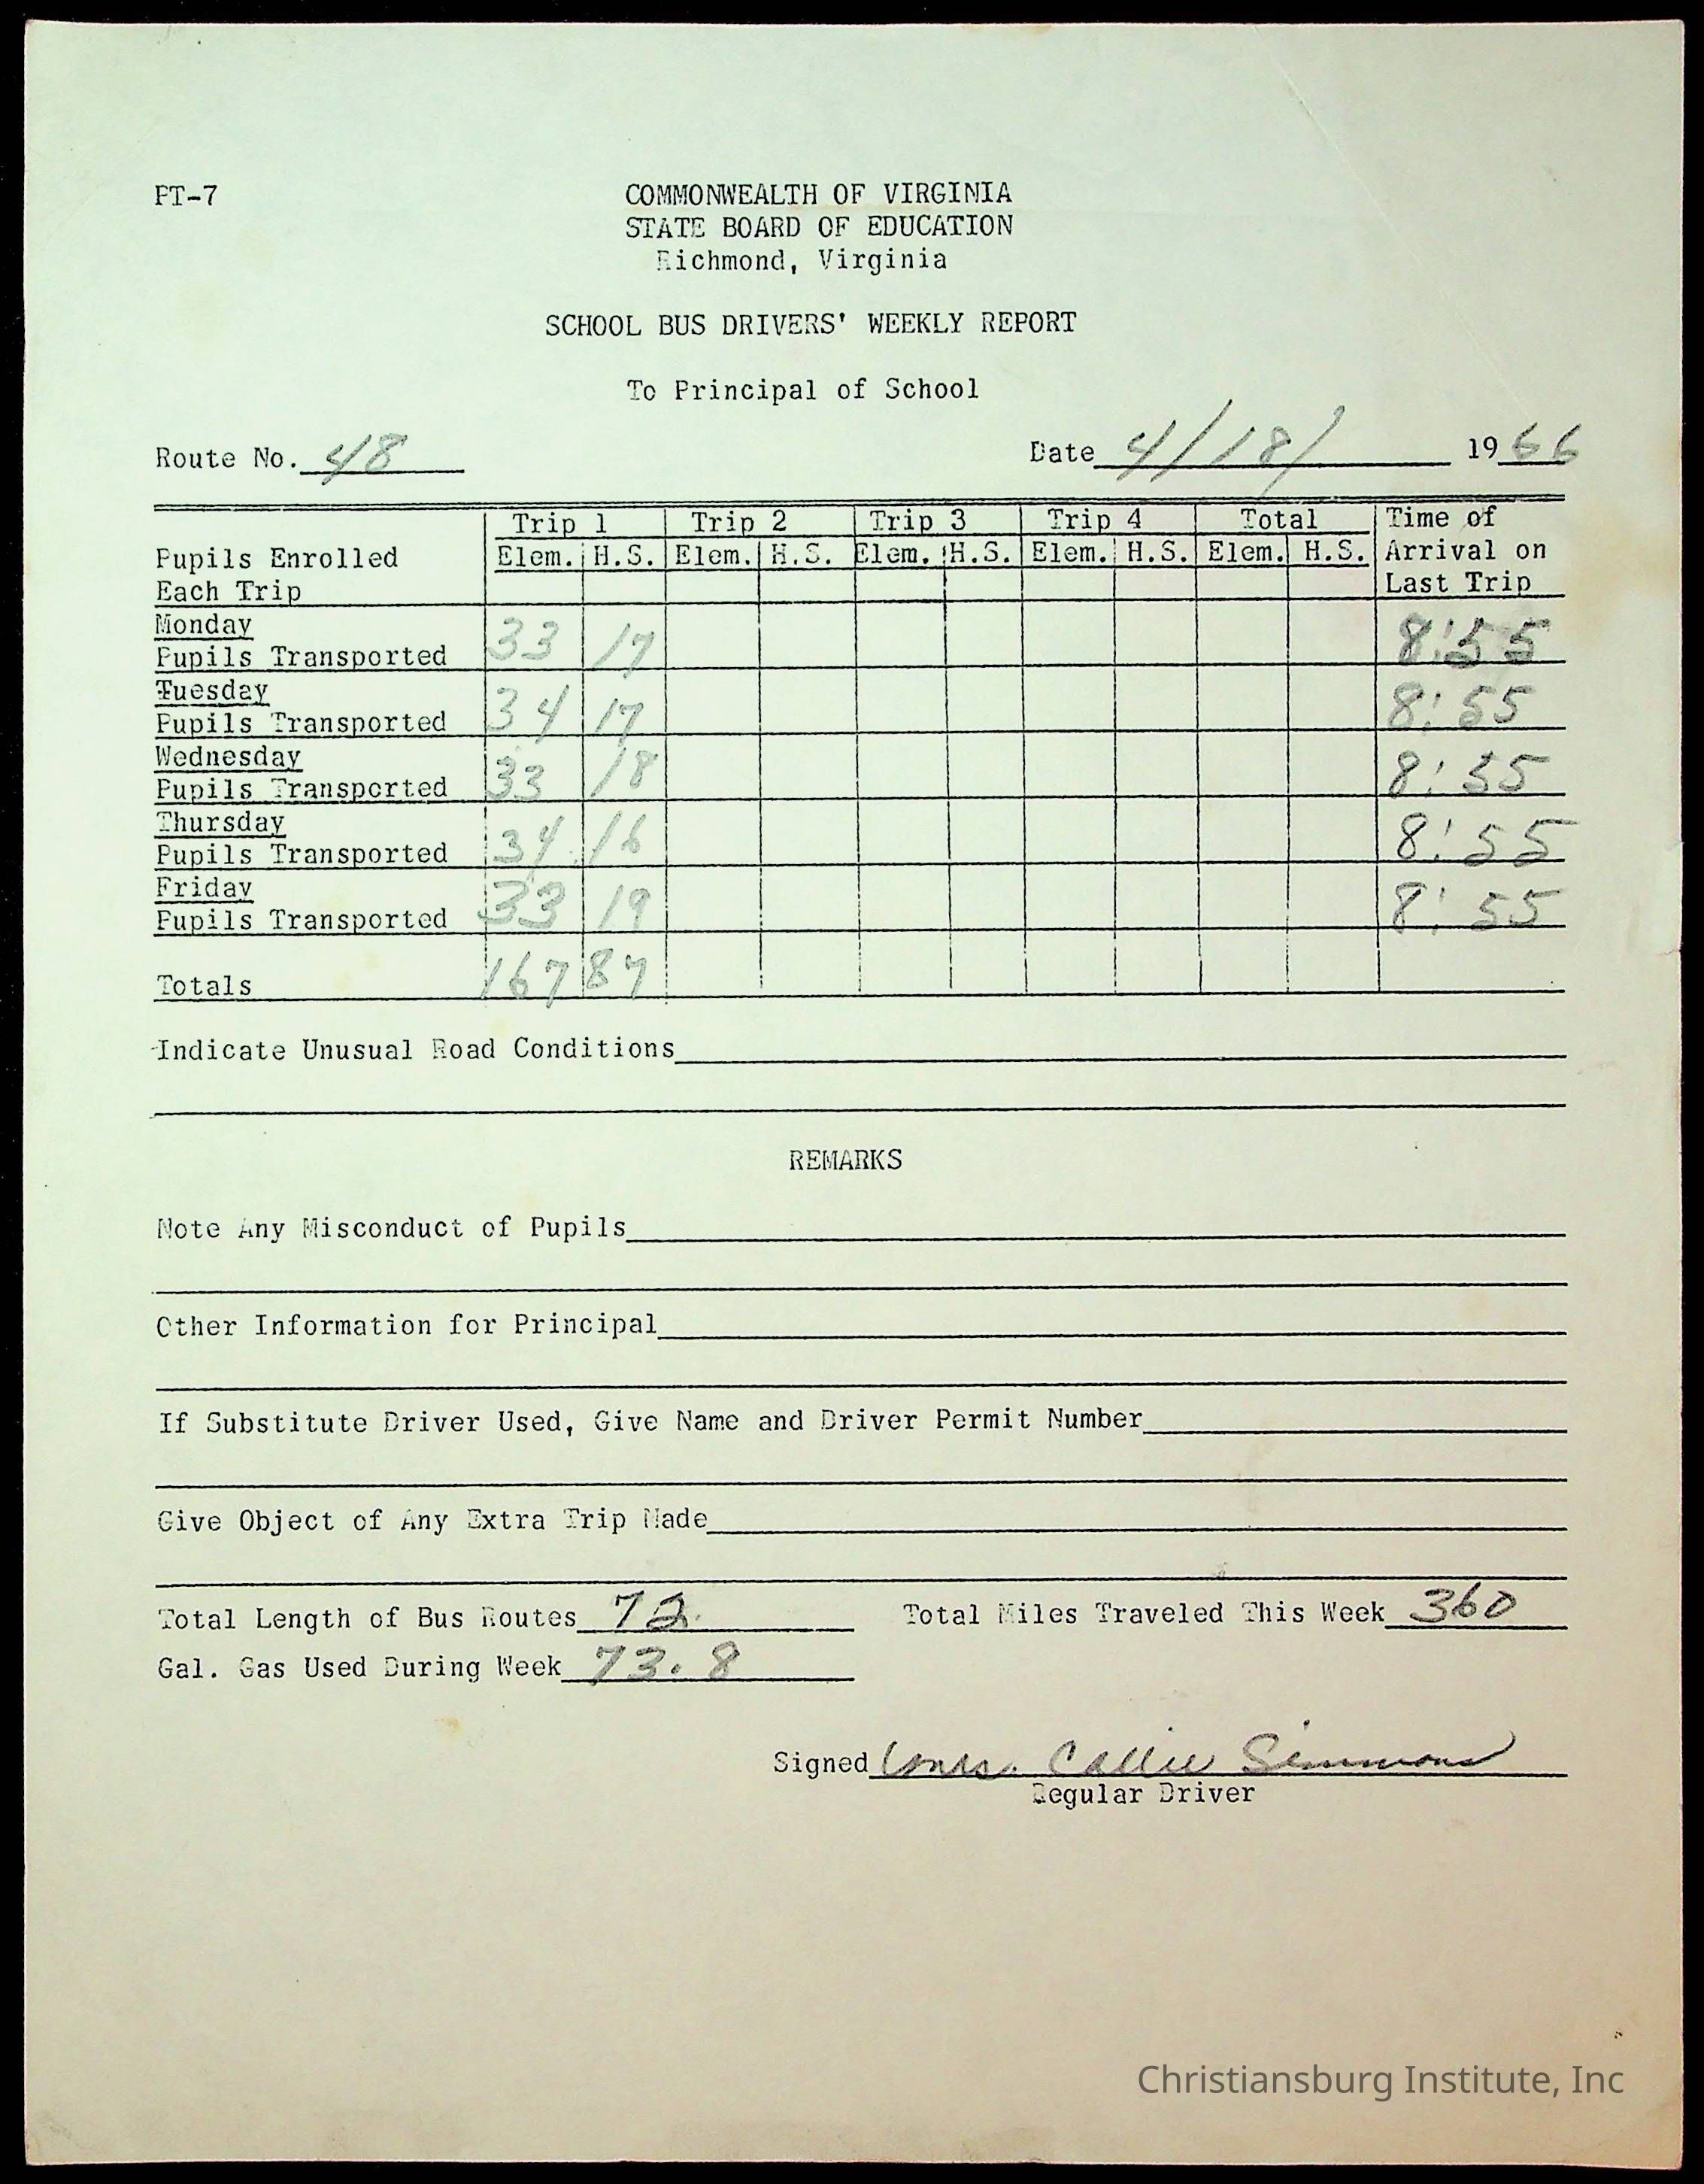 PT-7
COMMONWEALTH OF VIRGINIA
STATE BOARD OF EDUCATION
Richmond, Virginia
SCHOOL BUS DRIVERS' WEEKLY REPORT
To Principal of School
Route No. 48 Date 4/18/ 1966
Trip 1 Trip 2 Trip 3 Trip 4 Total Time of
Pupils Enrolled Elem. H.S. Elem. H.S. Elem. H.S. Elem. H.S. Elem. H.S. Arrival on
Each Trip Last Trip
Monday
Pupils Transported 33 17 8:55
Tuesday
Pupils Transported 34 17 8:55
Wednesday
Pupils Transported 33 18 8:55
Thursday
Pupils Transported 34 16 8:55
Friday
Pupils Transported 33 19 8:55
Totals 167 87
Indicate Unusual Road Conditions
REMARKS
Note Any Misconduct of Pupils
Other Information for Principal
If Substitute Driver Used, Give Name and Driver Permit Number
Give Object of Any Extra Trip Made
Total Length of Bus Routes 72 Total Miles Traveled This Week 360
Gal. Gas Used During Week 73.8
Signed Mrs. Callie Simmons
Regular Driver
Christiansburg Institute, Inc